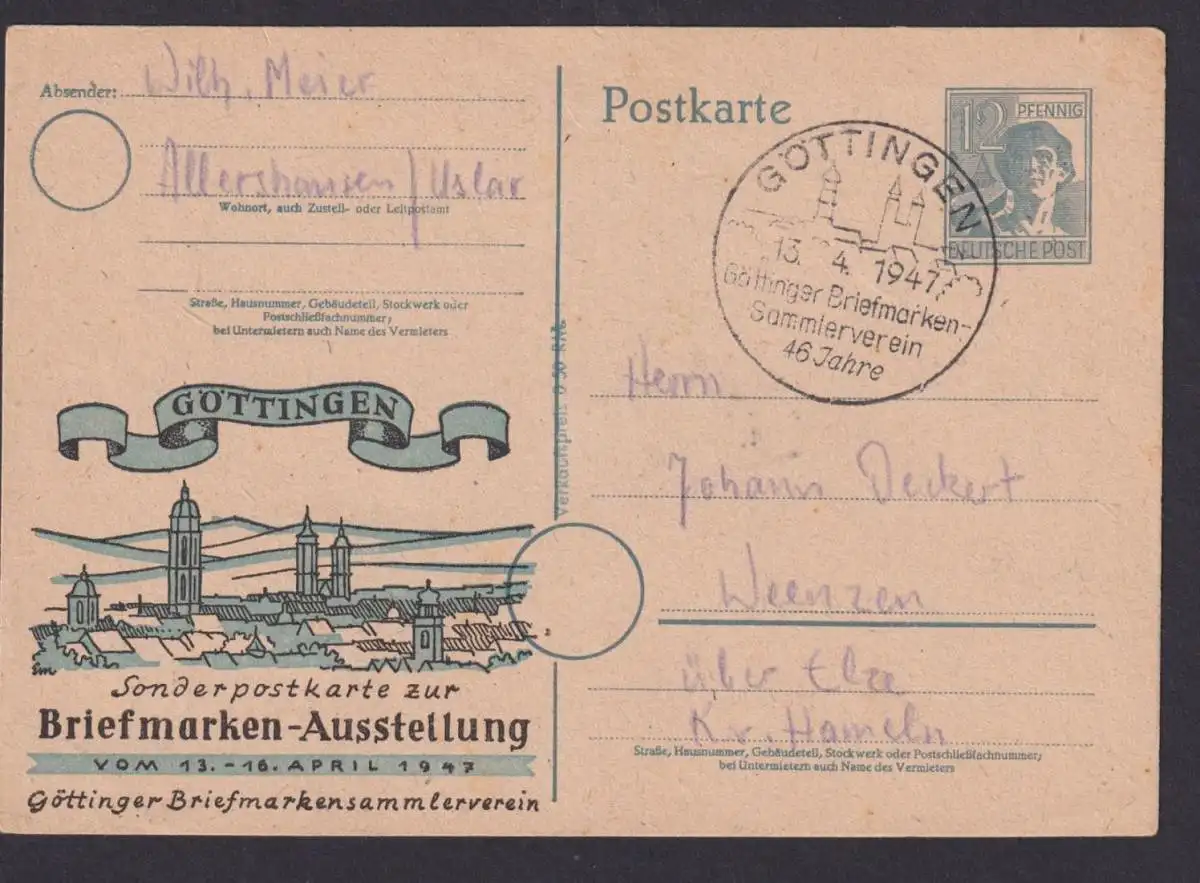 Absender: Wilh. Meier
Allershausen / Uslar
Wohnort, auch Zustell- oder Leitpostamt
Straße, Hausnummer, Gebäudeteil, Stockwerk oder
Postschließfachnummer;
bei Untermietern auch Name des Vermieters
GÖTTINGEN
Em
Sonderpostkarte zur
Briefmarken-Ausstellung
VOM 13.-16. APRIL 1947
Göttinger Briefmarkensammlerverein
Verkaufspreis 0 50 RM.
Postkarte
12 PFENNIG
DEUTSCHE POST
GÖTTINGEN
13. 4. 1947
Göttinger Briefmarken-
Sammlerverein
46 Jahre
Herrn
Johann Deckert
Weenzen
über Elze
Kr. Hameln
Straße, Hausnummer, Gebäudeteil, Stockwerk oder Postschließfachnummer;
bei Untermietern auch Name des Vermieters